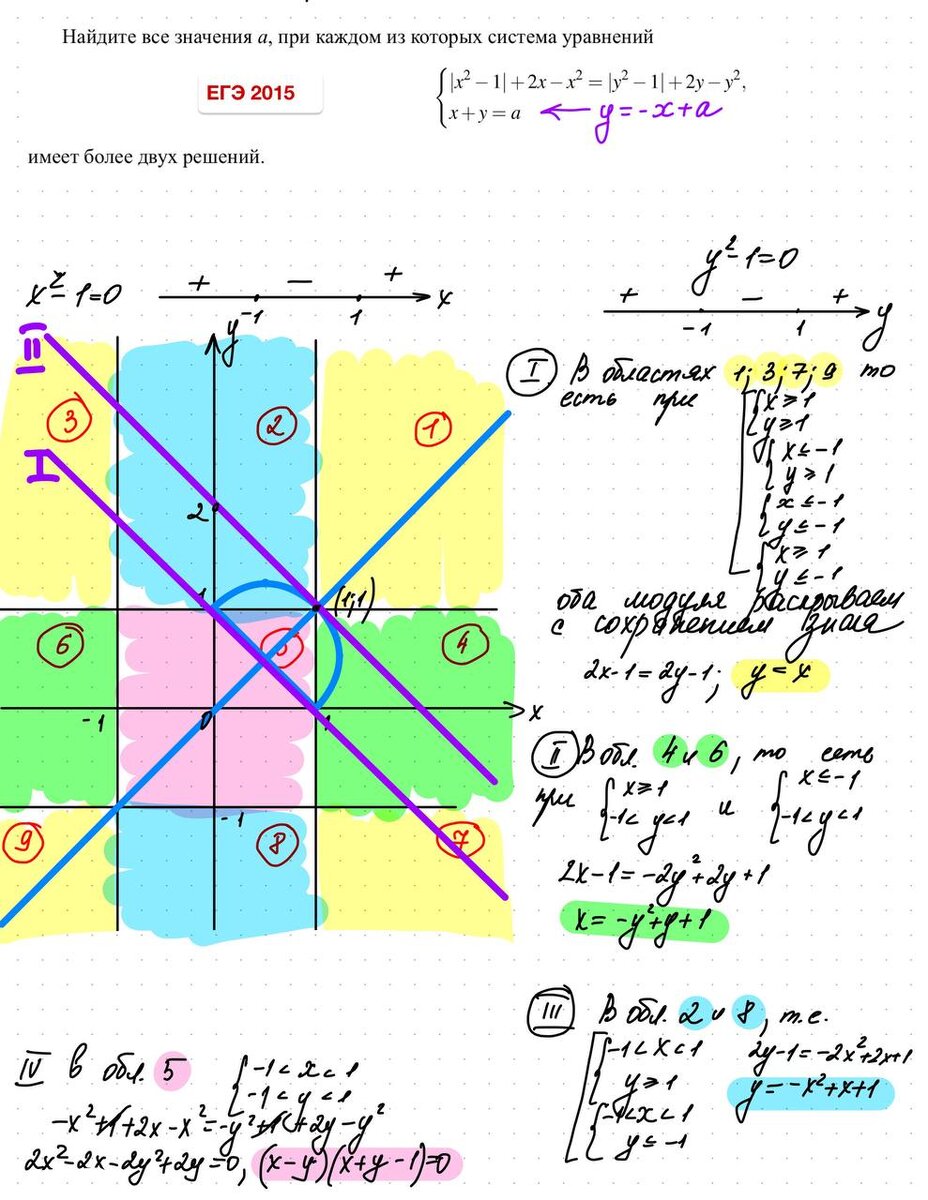 Найдите все значения a, при каждом из которых система уравнений
ЕГЭ 2015
|x² − 1| + 2x − x² = |y² − 1| + 2y − y²,
x + y = a ← y = -x + a
имеет более двух решений.
x² - 1 = 0
+ − + x
-1 1
y² - 1 = 0
+ − + y
-1 1
y
II
I
3
2
1
2
1
(1;1)
6
5
4
-1
0
1
x
-1
9
8
7
I В областях 1; 3; 7; 9 то
есть при
x ≥ 1
y ≥ 1
x ≤ -1
y ≥ 1
x ≤ -1
y ≤ -1
x ≥ 1
y ≤ -1
оба модуля раскрываем
с сохранением знака
2x-1 = 2y-1; y = x
II В обл. 4 и 6, то есть
при x ≥ 1 и x ≤ -1
-1 < y < 1 -1 < y < 1
2x-1 = -2y² + 2y + 1
x = -y² + y + 1
III В обл. 2 и 8, т.е.
-1 < x < 1 2y-1 = -2x² + 2x + 1
y ≥ 1 y = -x² + x + 1
-1 < x < 1
y ≤ -1
IV В обл. 5 -1 < x < 1
-1 < y < 1
-x² + 1 + 2x - x² = -y² + 1 + 2y - y²
2x² - 2x - 2y² + 2y = 0, (x-y)(x+y-1) = 0